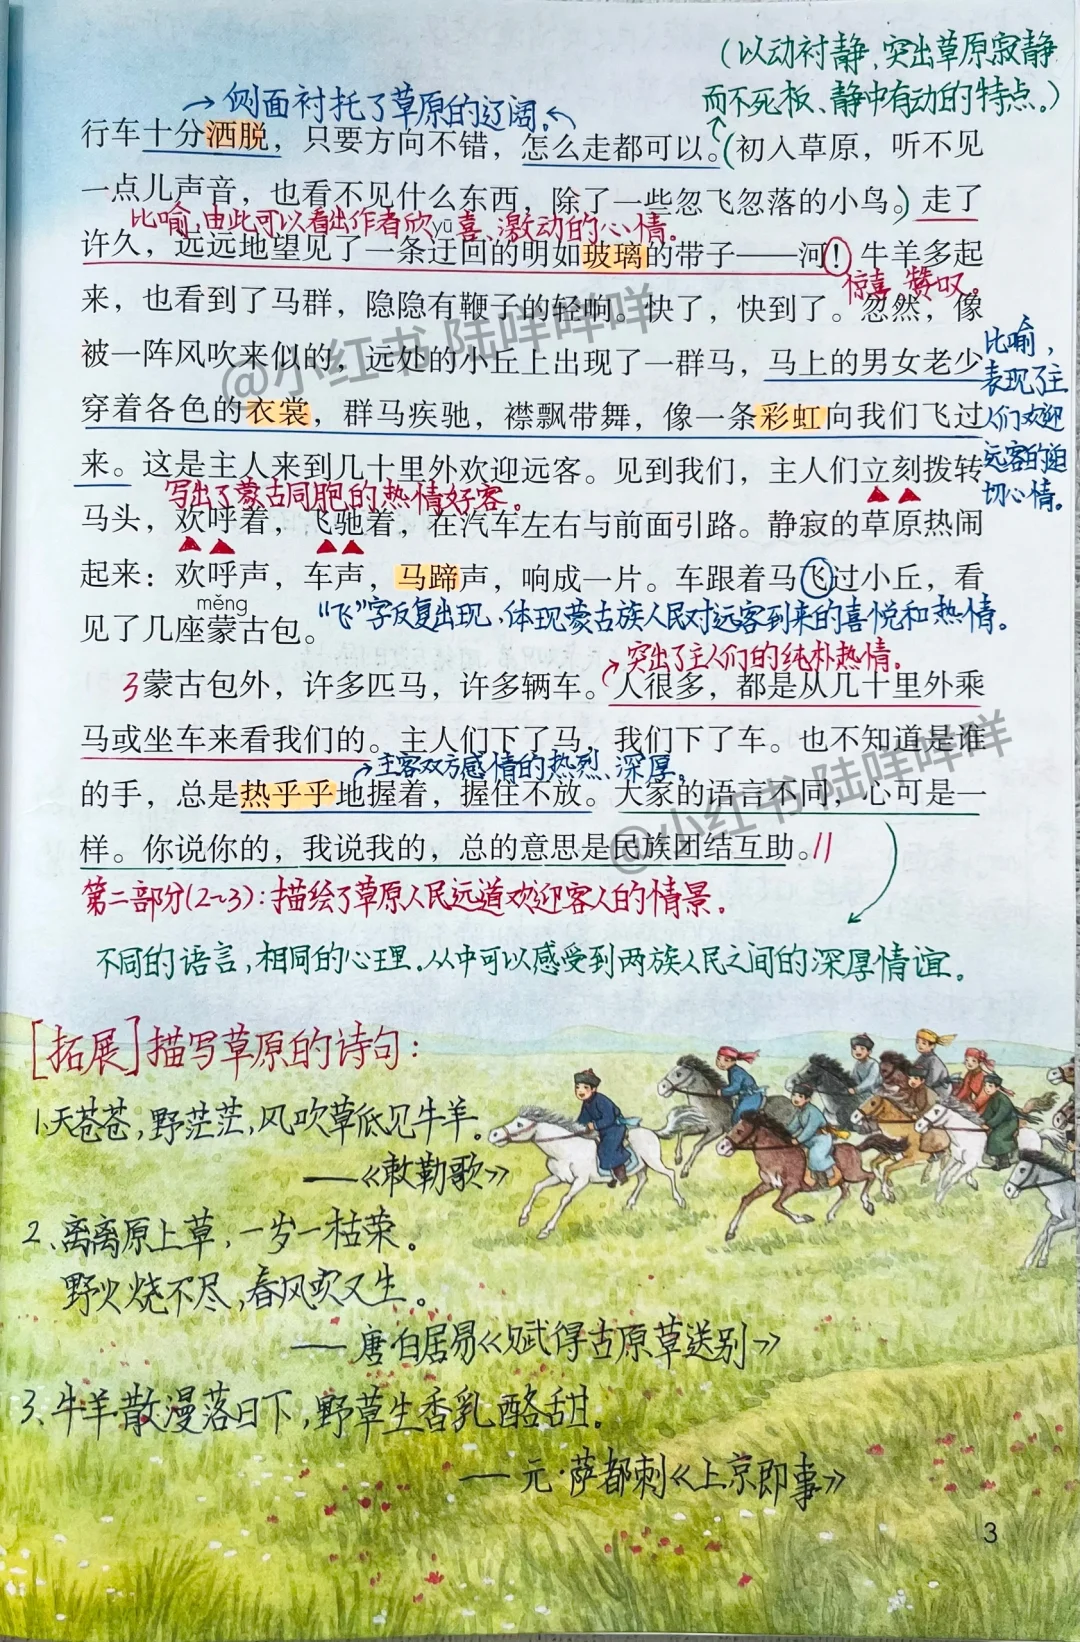 （以动衬静，突出草原寂静
而不死板、静中有动的特点。）
→侧面衬托了草原的辽阔。
行车十分洒脱，只要方向不错，怎么走都可以。（初入草原，听不见
一点儿声音，也看不见什么东西，除了一些忽飞忽落的小鸟。）走了
比喻，由此可以看出作者欣喜、激动的心情。
yū
许久，远远地望见了一条迂回的明如玻璃的带子——河！牛羊多起
惊喜 赞叹。
来，也看到了马群，隐隐有鞭子的轻响。快了，快到了。忽然，像
@小红书 陆咩咩咩
被一阵风吹来似的，远处的小丘上出现了一群马，马上的男女老少
穿着各色的衣裳，群马疾驰，襟飘带舞，像一条彩虹向我们飞过
比喻，
表现了主
人们欢迎
远客的迫
切心情。
来。这是主人来到几十里外欢迎远客。见到我们，主人们立刻拨转
写出了蒙古同胞的热情好客。
马头，欢呼着，飞驰着，在汽车左右与前面引路。静寂的草原热闹
起来：欢呼声，车声，马蹄声，响成一片。车跟着马飞过小丘，看
měng
见了几座蒙古包。
“飞”字反复出现，体现蒙古族人民对远客到来的喜悦和热情。
突出了主人们的纯朴热情。
3蒙古包外，许多匹马，许多辆车。人很多，都是从几十里外乘
马或坐车来看我们的。主人们下了马，我们下了车。也不知道是谁
→主客双方感情的热烈、深厚。
的手，总是热乎乎地握着，握住不放。大家的语言不同，心可是一
@小红书 陆咩咩咩
样。你说你的，我说我的，总的意思是民族团结互助。//
第二部分(2~3)：描绘了草原人民远道欢迎客人的情景。
不同的语言，相同的心理。从中可以感受到两族人民之间的深厚情谊。
[拓展]描写草原的诗句：
1、天苍苍，野茫茫，风吹草低见牛羊。
——《敕勒歌》
2、离离原上草，一岁一枯荣。
野火烧不尽，春风吹又生。
——唐·白居易《赋得古原草送别》
3、牛羊散漫落日下，野草生香乳酪甜。
——元·萨都剌《上京即事》
3